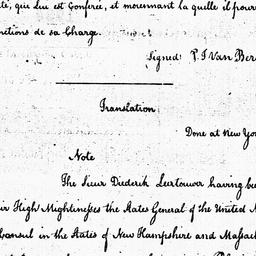 té, que lui est Conferée, et moiennant la quelle il pour
nctions de sa Charge
Signed: P. J Van Ber
Translation
Done at New Yo
Note
The Sieur Diederik Leertouwer having be
ir High Mightinesses the States General of the United N
Consul in the States of New Hampshire and Massach